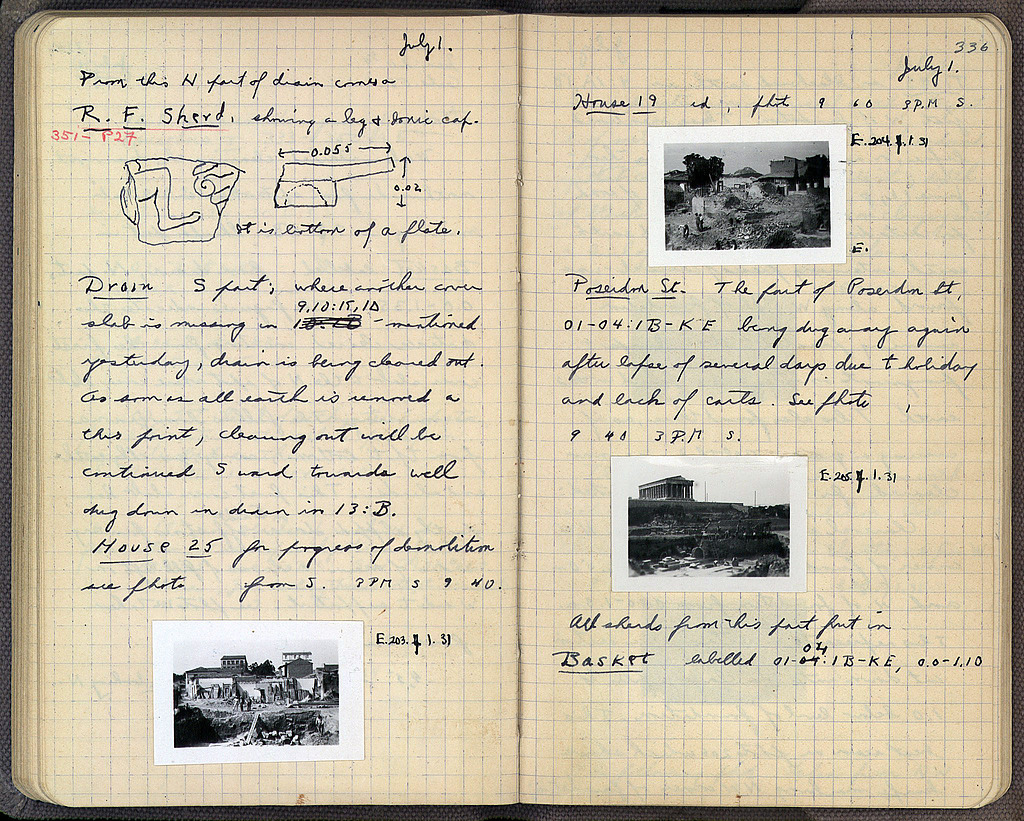 July 1.
From this N part of drain comes a
R. F. Sherd, showing a leg & Ionic cap.
351- P27
0.055
0.02
It is bottom of a plate.
Drain S part; where another cover
9,10:15,1Δ
slab is missing in - mentioned
yesterday, drain is being cleared out.
As soon as all earth is removed a
this point, cleaning out will be
continued S ward towards well
dug down in drain in 13:B.
House 25 for progress of demolition
see photo from S. 3PM S 9 40.
E.203. 1.31
336
July 1.
House 19 id, phot 9 60 3P.M S.
E.204. 1.31
E.
Poseidon St. The part of Poseidon St,
01-04:1B-KE being dug away again
after lapse of several days due t holiday
and lack of carts. See photo ,
9 40 3 P.M S.
E.205. 1.31
All sherds from this part put in
04
Basket labelled 01-04:1B-KE, 0.0-1.10